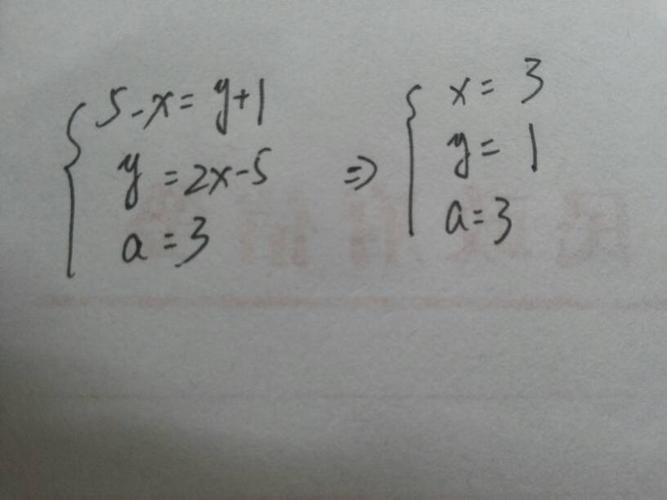 5-x=y+1
y=2x-5
a=3
⇒
x=3
y=1
a=3